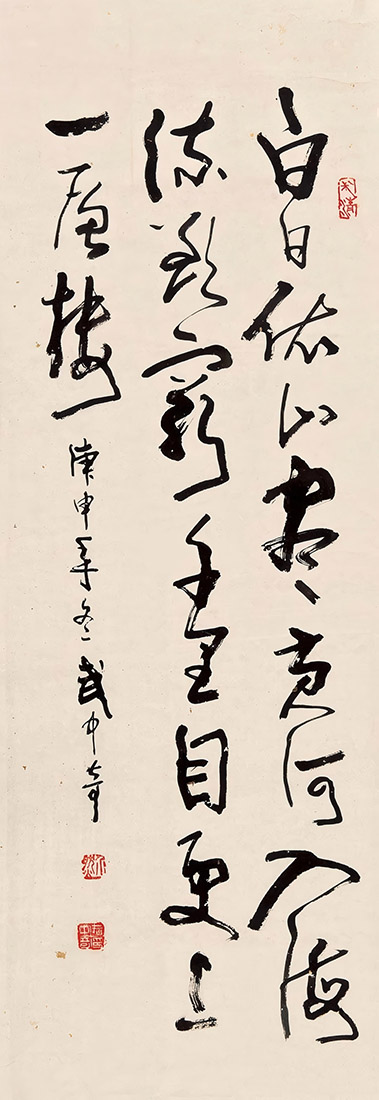 白日依山盡黄河入海
流欲窮千里目更上
一層樓 庚申年冬 武中奇